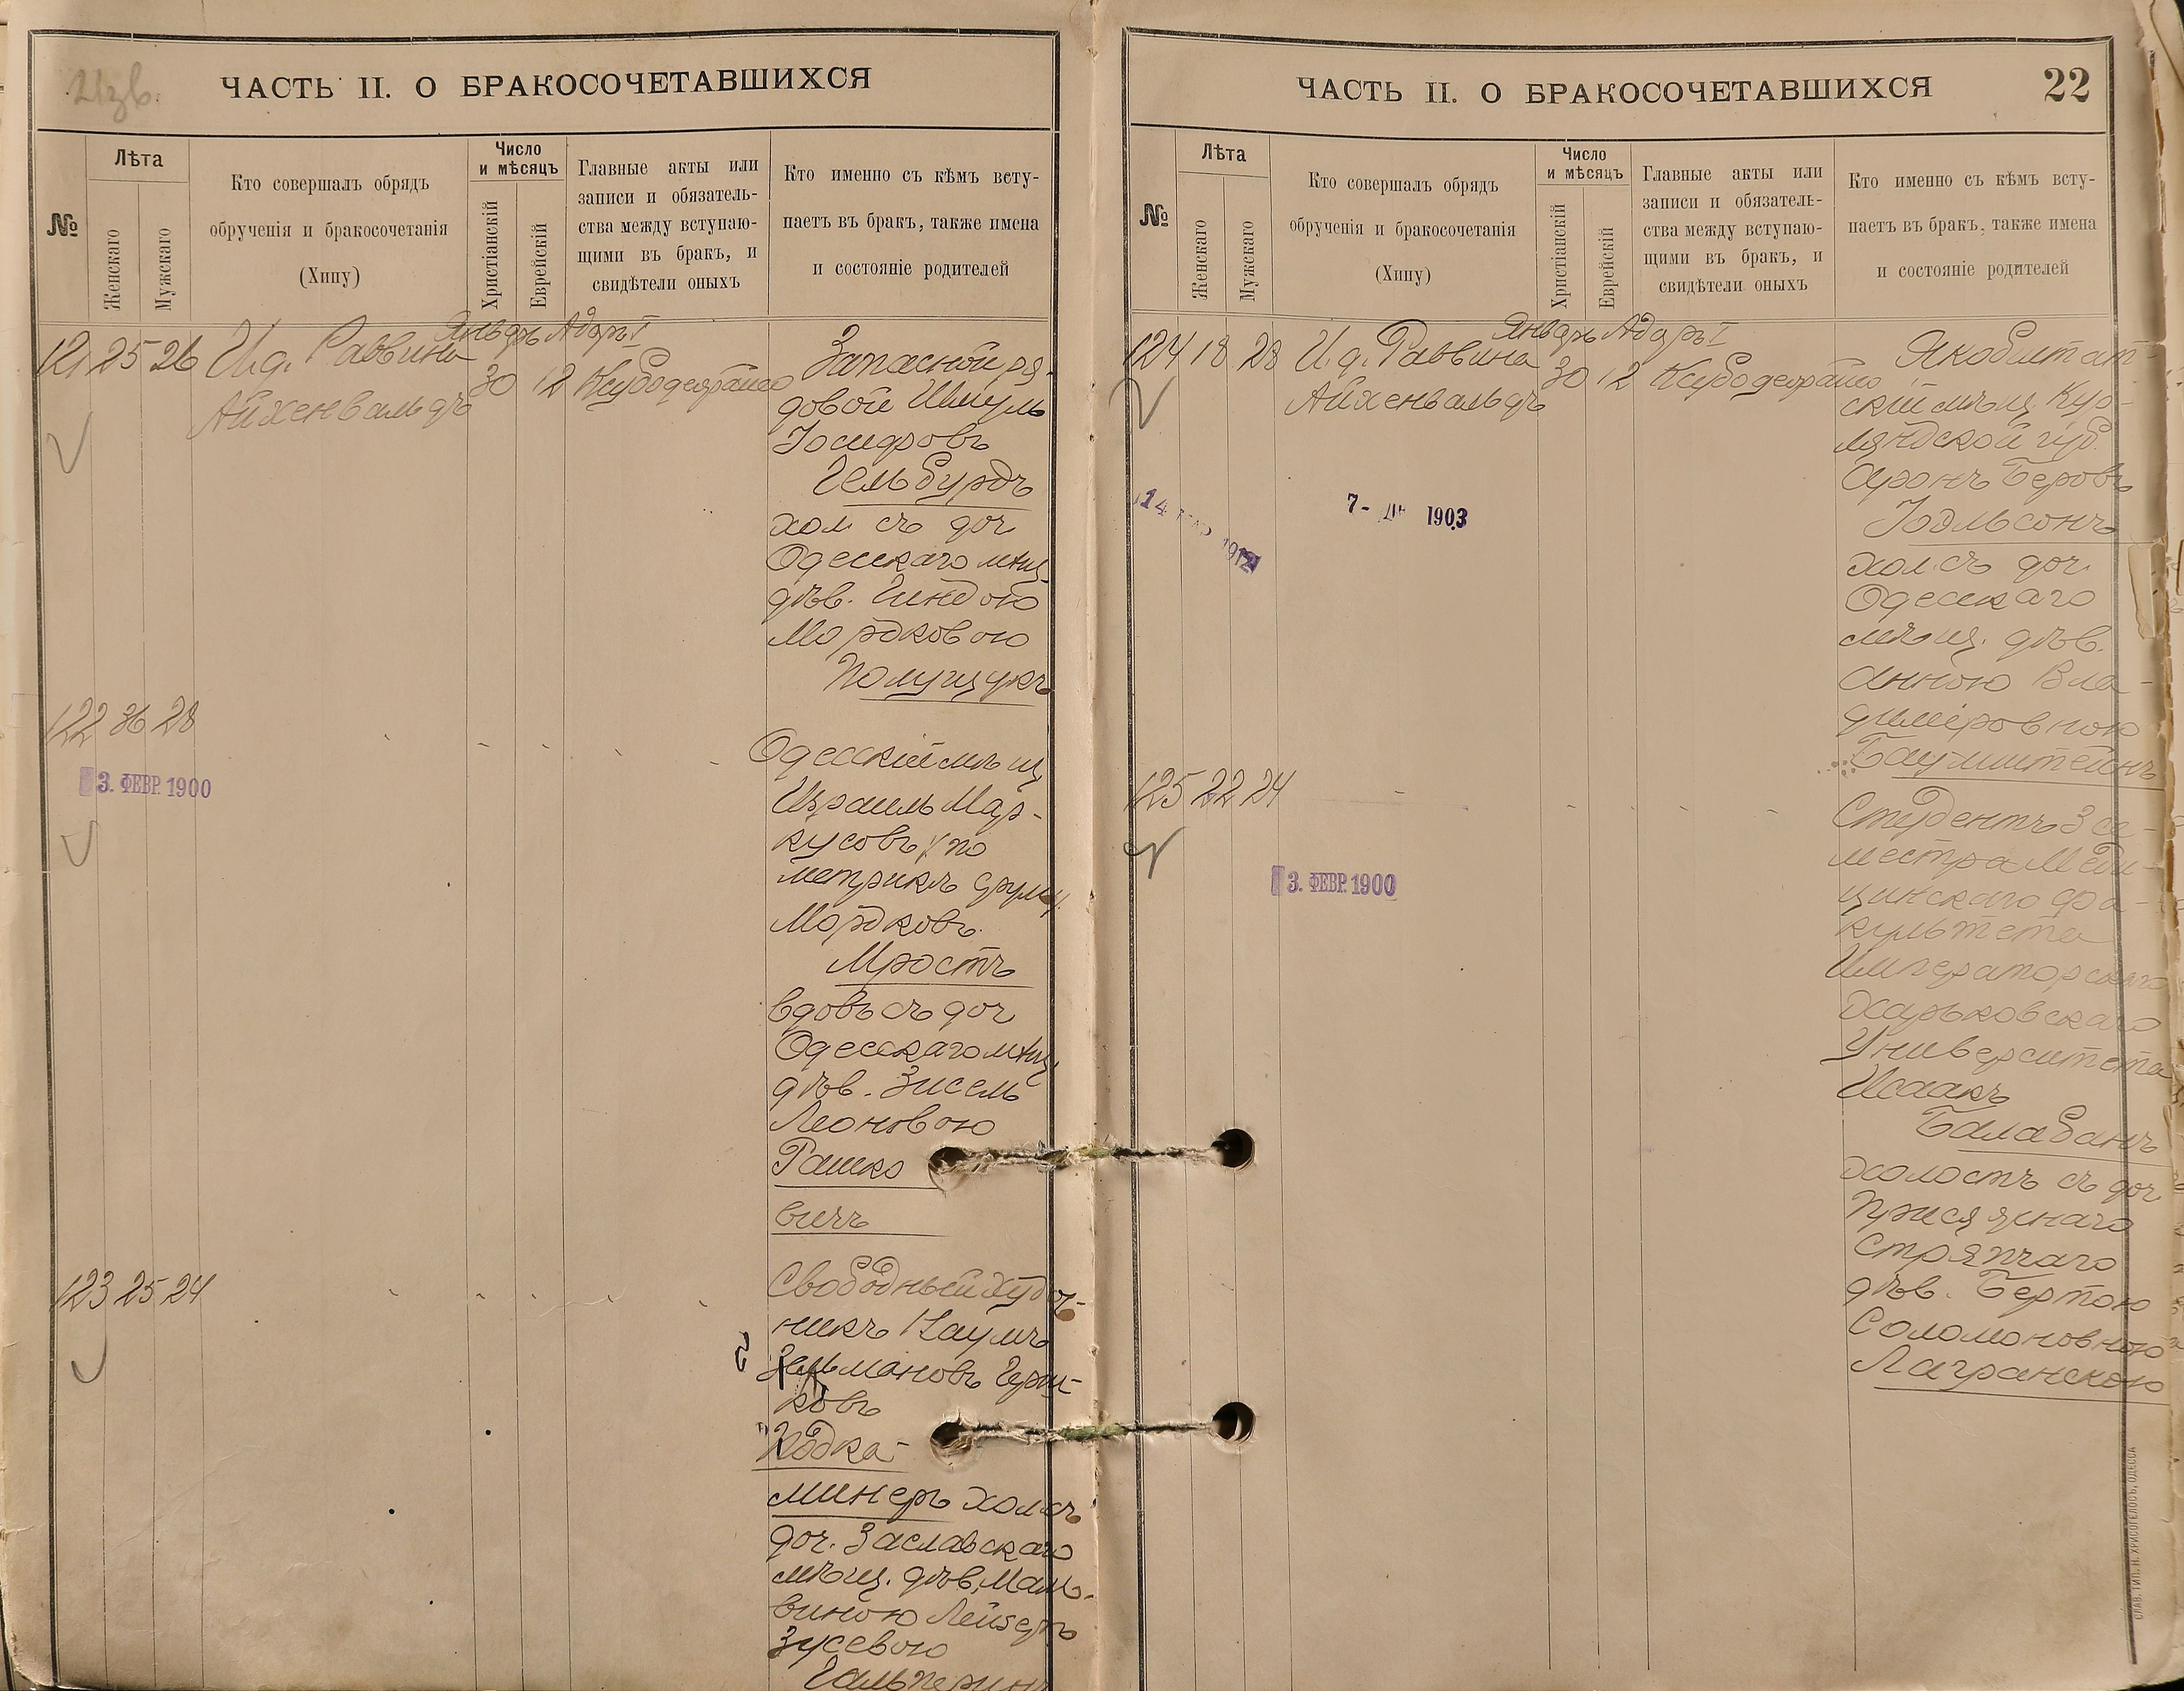 Изв.
ЧАСТЬ II. О БРАКОСОЧЕТАВШИХСЯ
№
Лѣта
Женскаго
Мужскаго
Кто совершалъ обрядъ
обрученія и бракосочетанія
(Хипу)
Число
и мѣсяцъ
Христіанскій
Еврейскій
Главные акты или
записи и обязатель-
ства между вступаю-
щими въ бракъ, и
свидѣтели оныхъ
Кто именно съ кѣмъ всту-
паетъ въ бракъ, также имена
и состояніе родителей
Январь Адаръ I
121 25 26 И.д. Раввина
Айхенвальдъ
30 12
Запасной ря-
довой Шмуль
Іосифовъ
Гельбурдъ
хол съ доч
Одесскаго мѣщ
дѣв. Гиндою
Мордковою
Полищукъ
122 36 28
3. ФЕВР. 1900
Одесскій мѣщ
Израиль Мар-
кусовъ /по
метрикѣ Срулъ/
Мордковъ
Мростъ
вдовъ съ доч
Одесскаго мѣщ
дѣв. Зисель
Леоновою
Рашко
вичъ
123 25 24
Свободный худож-
никъ Наумъ
Зельмановъ Герш-
ковъ
Кодка-
минеръ хол съ
доч. Заславскаго
мѣщ. дѣв. Маль-
виною Лейзеръ
Зусевою
Гальперинъ
ЧАСТЬ II. О БРАКОСОЧЕТАВШИХСЯ
22
№
Лѣта
Женскаго
Мужскаго
Кто совершалъ обрядъ
обрученія и бракосочетанія
(Хипу)
Число
и мѣсяцъ
Христіанскій
Еврейскій
Главные акты или
записи и обязатель-
ства между вступаю-
щими въ бракъ, и
свидѣтели оныхъ
Кто именно съ кѣмъ всту-
паетъ въ бракъ, также имена
и состояніе родителей
Январь Адаръ I
124 18 28 И.д. Раввина
Айхенвальдъ
30 12
7- 1903
14 1912
Якобштат-
скій мѣщ. Кур-
ляндской губ.
Аронъ Беровъ
Іодльсонъ
хол. съ доч.
Одесскаго
мѣщ. дѣв.
Анною Вла-
диміровною
Баумштейнъ
125 22 24
3. ФЕВР. 1900
Студентъ 3 се-
местра Меди-
цинскаго фа-
культета
Императорскаго
Харьковскаго
Университета
Исаакъ
Балабанъ
холостъ съ доч
Присяжнаго
Стряпчаго
дѣв. Бертою
Соломоновною
Лагранскою
СЛАВ. ТИП. Н. ХРИСОГЕЛОСЪ, ОДЕССА